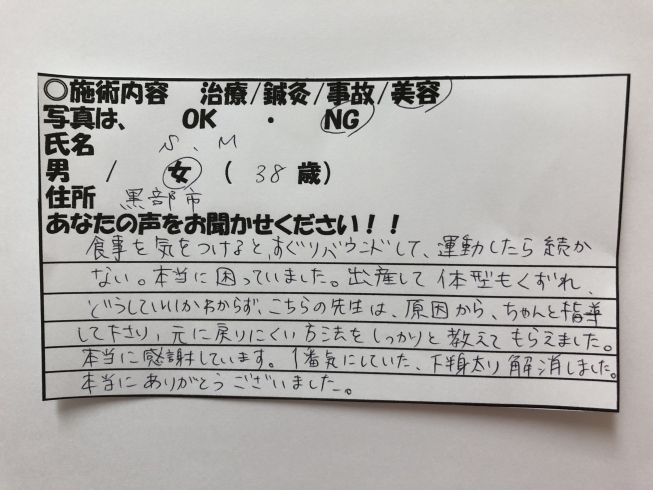 ◎施術内容 治療/鍼灸/事故/美容
写真は、 OK ・ NG
氏名 S.M
男 / 女 ( 38 歳)
住所 黒部市
あなたの声をお聞かせください!!
食事を気をつけると、すぐリバウンドして、運動したら続か
ない。本当に困っていました。出産して体型もくずれ、
どうしていいかわからず、こちらの先生は、原因から、ちゃんと指導
して下さり、元に戻りにくい方法をしっかりと教えてもらえました。
本当に感謝しています。1番気にしていた、下半身太り解消しました。
本当にありがとうございました。